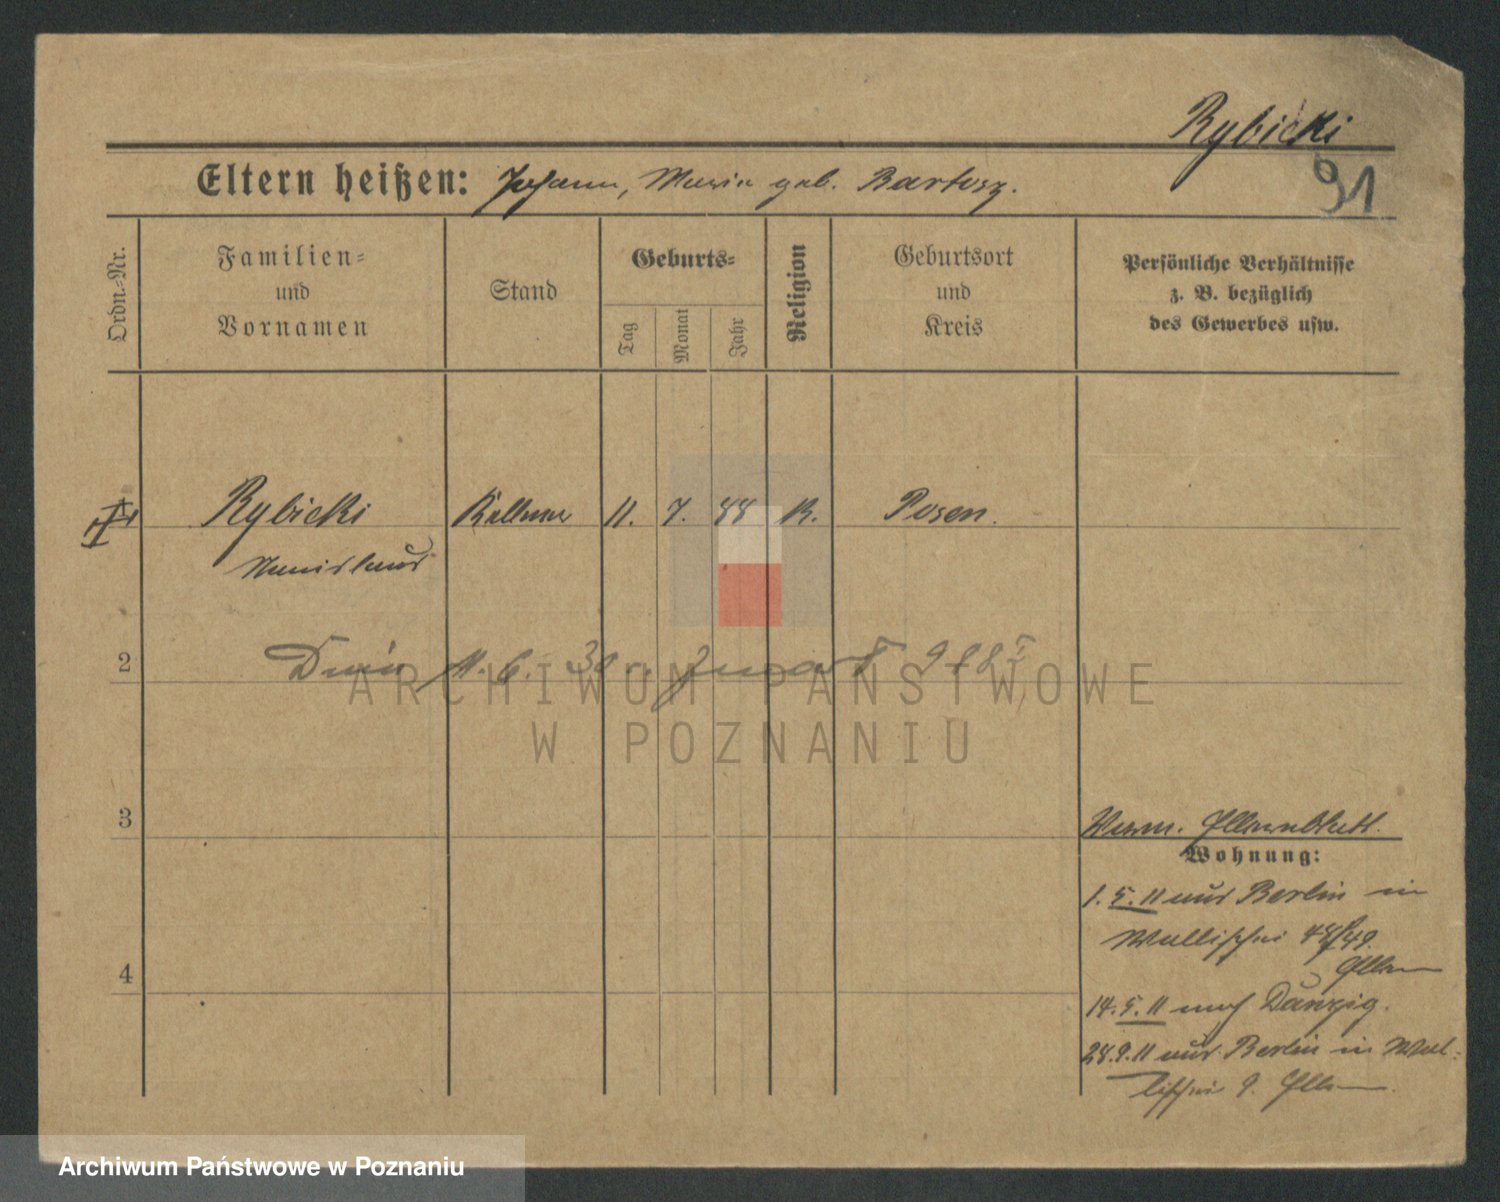 Rybicki
91
Eltern heißen: Johann, Maria geb. Bartosz.
Ordn.-Nr.
Familien-
und
Vornamen
Stand
Geburts-
Tag
Monat
Jahr
Religion
Geburtsort
und
Kreis
Persönliche Verhältnisse
z. B. bezüglich
des Gewerbes usw.
Rybicki Kellner 11. 7. 88 K. Posen.
2
3
4
Wohnung:
1.5.11 aus Berlin in
Wallischei 48/49.
Eltern
14.5.11 nach Danzig.
28.9.11 aus Berlin in Wal-
lischei 9. Eltern
ARCHIWUM PAŃSTWOWE
W POZNANIU
Archiwum Państwowe w Poznaniu